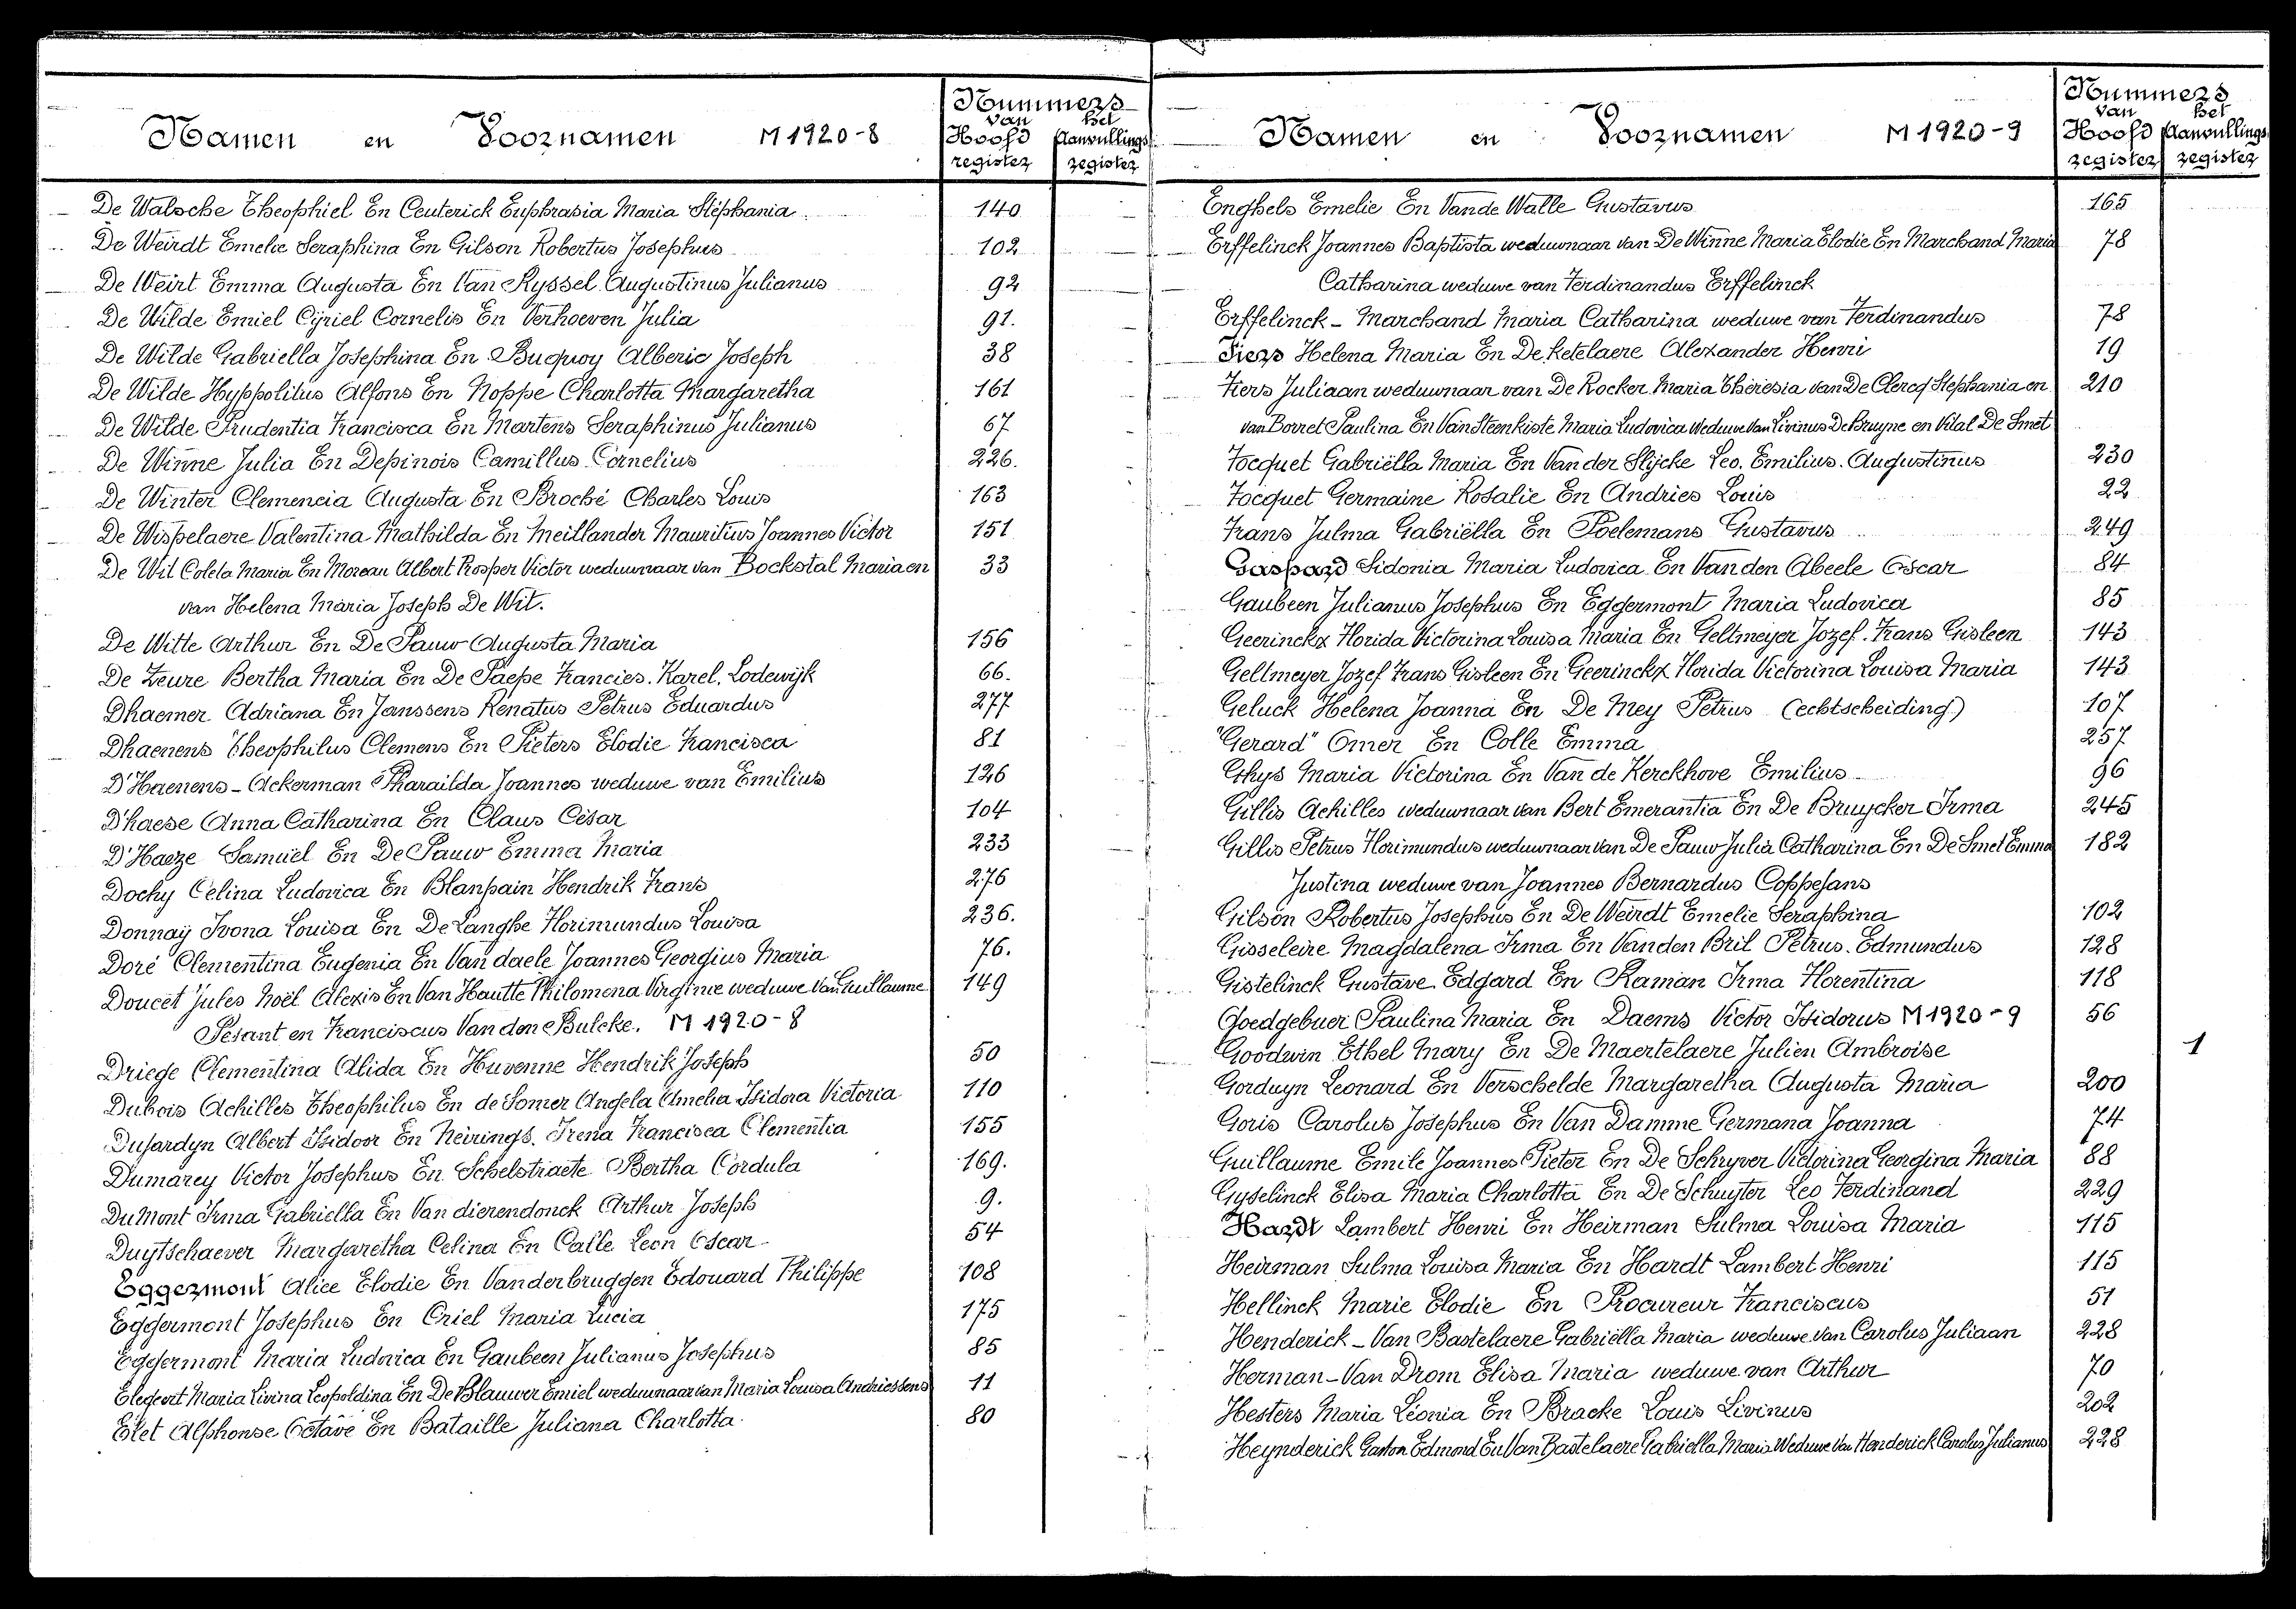 Namen en Voornamen M 1920-8 Nummers van het Hoofd register Aanvullings register
De Walsche Theophiel En Ceuterick Euphrasia Maria Stéphania 140
De Weirdt Emelie Seraphina En Gilson Robertus Josephus 102
De Weirt Emma Augusta En Van Ryssel Augustinus Julianus 92
De Wilde Emiel Cÿriel Cornelis En Verhoeven Julia 91.
De Wilde Gabriella Josephina En Buquoy Alberic Joseph 38
De Wilde Hyppolitus Alfons En Noppe Charlotta Margaretha 161
De Wilde Prudentia Francisca En Martens Seraphinus Julianus 67
De Winne Julia En Depinois Camillus Cornelius 226.
De Winter Clemencia Augusta En Broché Charles Louis 163
De Wispelaere Valentina Mathilda En Meillander Mauritius Joannes Victor 151
De Wit Coleta Maria En Moreau Albert Prosper Victor weduwnaar van Bockstal Maria en 33
van Helena Maria Joseph De Wit.
De Witte Arthur En De Pauw Augusta Maria 156
De Zeure Bertha Maria En De Paepe Francies. Karel. Lodewijk 66.
Dhaemer Adriana En Janssens Renatus Petrus Eduardus 277
Dhaenens Theophilus Clemens En Pieters Elodie Francisca 81
D'Haenens - Ackerman Pharaïlda Joannes weduwe van Emilius 126
D'haese Anna Catharina En Claus César 104
D'Haeze Samuël En De Pauw Emma Maria 233
Dochy Celina Ludovica En Blanpain Hendrik Frans 276
Donnaÿ Ivona Louisa En De Langhe Florimundus Louisa 236.
Doré Clementina Eugenia En Van daele Joannes Georgius Maria 76.
Doucet Jules Noël Alexis En Van Hautte Philomena Virginie weduwe van Guillaume 149
Pesant en Franciscus Van den Bulcke. M 1920-8
Driege Clementina Alida En Huvenne Hendrik Joseph 50
Dubois Achilles Theophilus En de Somer Angela Amelia Isidora Victoria 110
Dujardyn Albert Isidoor En Neirings. Irena Francisca Clementia 155
Dumarey Victor Josephus En Schelstraete Bertha Cordula 169.
Du Mont Irma Gabriella En Van dierendonck Arthur Joseph 9.
Duytschaever Margaretha Celina En Calle Leon Oscar 54
Eggermont Alice Elodie En Vanderbruggen Edouard Philippe 108
Eggermont Josephus En Criel Maria Lucia 175
Eggermont Maria Ludovica En Gaubeen Julianus Josephus 85
Elegeert Maria Livina Leopoldina En De Blauwer Emiel weduwnaar van Maria Louisa Andriessens 11
Elet Alphonse Octave En Bataille Juliana Charlotta. 80
Namen en Voornamen M 1920-9 Nummers van het Hoofd register Aanvullings register
Enghels Emelie En Vande Walle Gustavus 165
Erffelinck Joannes Baptista weduwnaar van De Winne Maria Elodie En Marchand Maria 78
Catharina weduwe van Ferdinandus Erffelinck
Erffelinck - Marchand Maria Catharina weduwe van Ferdinandus 78
Fiers Helena Maria En De ketelaere Alexander Henri 19
Fiers Juliaan weduwnaar van De Rocker Maria Theresia van De Clercq Stephania en 210
van Borret Paulina En Van Steenkiste Maria Ludovica weduwe van Livinus De Bruyne en Vital De Smet
Focquet Gabriëlla Maria En Van der Slijcke Leo. Emilius. Augustinus 230
Focquet Germaine Rosalie En Andries Louis 22
Frans Julma Gabriëlla En Poelemans Gustavus 249
Gaspard Sidonia Maria Ludovica En Van den Abeele Oscar 84
Gaubeen Julianus Josephus En Eggermont Maria Ludovica 85
Geerinckx Florida Victorina Louisa Maria En Geltmeyer Jozef. Frans Gisleen 143
Geltmeyer Jozef Frans Gisleen En Geerinckx Florida Victorina Louisa Maria 143
Geluck Helena Joanna En De Mey Petrus (echtscheiding) 107
"Gerard" Omer En Colle Emma 257
Ghys Maria Victorina En Van de Kerckhove Emilius 96
Gillis Achilles weduwnaar van Bert Emerantia En De Bruycker Irma 245
Gillis Petrus Florimundus weduwnaar van De Pauw Julia Catharina En De Smet Emma 182
Justina weduwe van Joannes Bernardus Coppejans
Gilson Robertus Josephus En De Weirdt Emelie Seraphina 102
Gisseleire Magdalena Irma En Vanden Bril Petrus. Edmundus 128
Gistelinck Gustave Edgard En Raman Irma Florentina 118
Goedgebuer Paulina Maria En Daems Victor Isidorus M 1920-9 56
Goodwin Ethel Mary En De Maertelaere Julien Ambroise 1
Gorduyn Leonard En Verschelde Margaretha Augusta Maria 200
Goris Carolus Josephus En Van Damme Germana Joanna 74
Guillaume Emile Joannes Pieter En De Schryver Victorina Georgina Maria 88
Gyselinck Elisa Maria Charlotta En De Schuyter Leo Ferdinand 229
Hardt Lambert Henri En Heirman Sulma Louisa Maria 115
Heirman Sulma Louisa Maria En Hardt Lambert Henri 115
Hellinck Marie Elodie En Procureur Franciscus 51
Henderick - Van Bastelaere Gabriëlla Maria weduwe van Carolus Juliaan 228
Herman - Van Drom Elisa Maria weduwe van Arthur 70
Hesters Maria Léonia En Bracke Louis Livinus 202
Heynderick Gaston Edmond En Van Bastelaere Gabriella Maria Weduwe Van Henderick Carolus Julianus 228